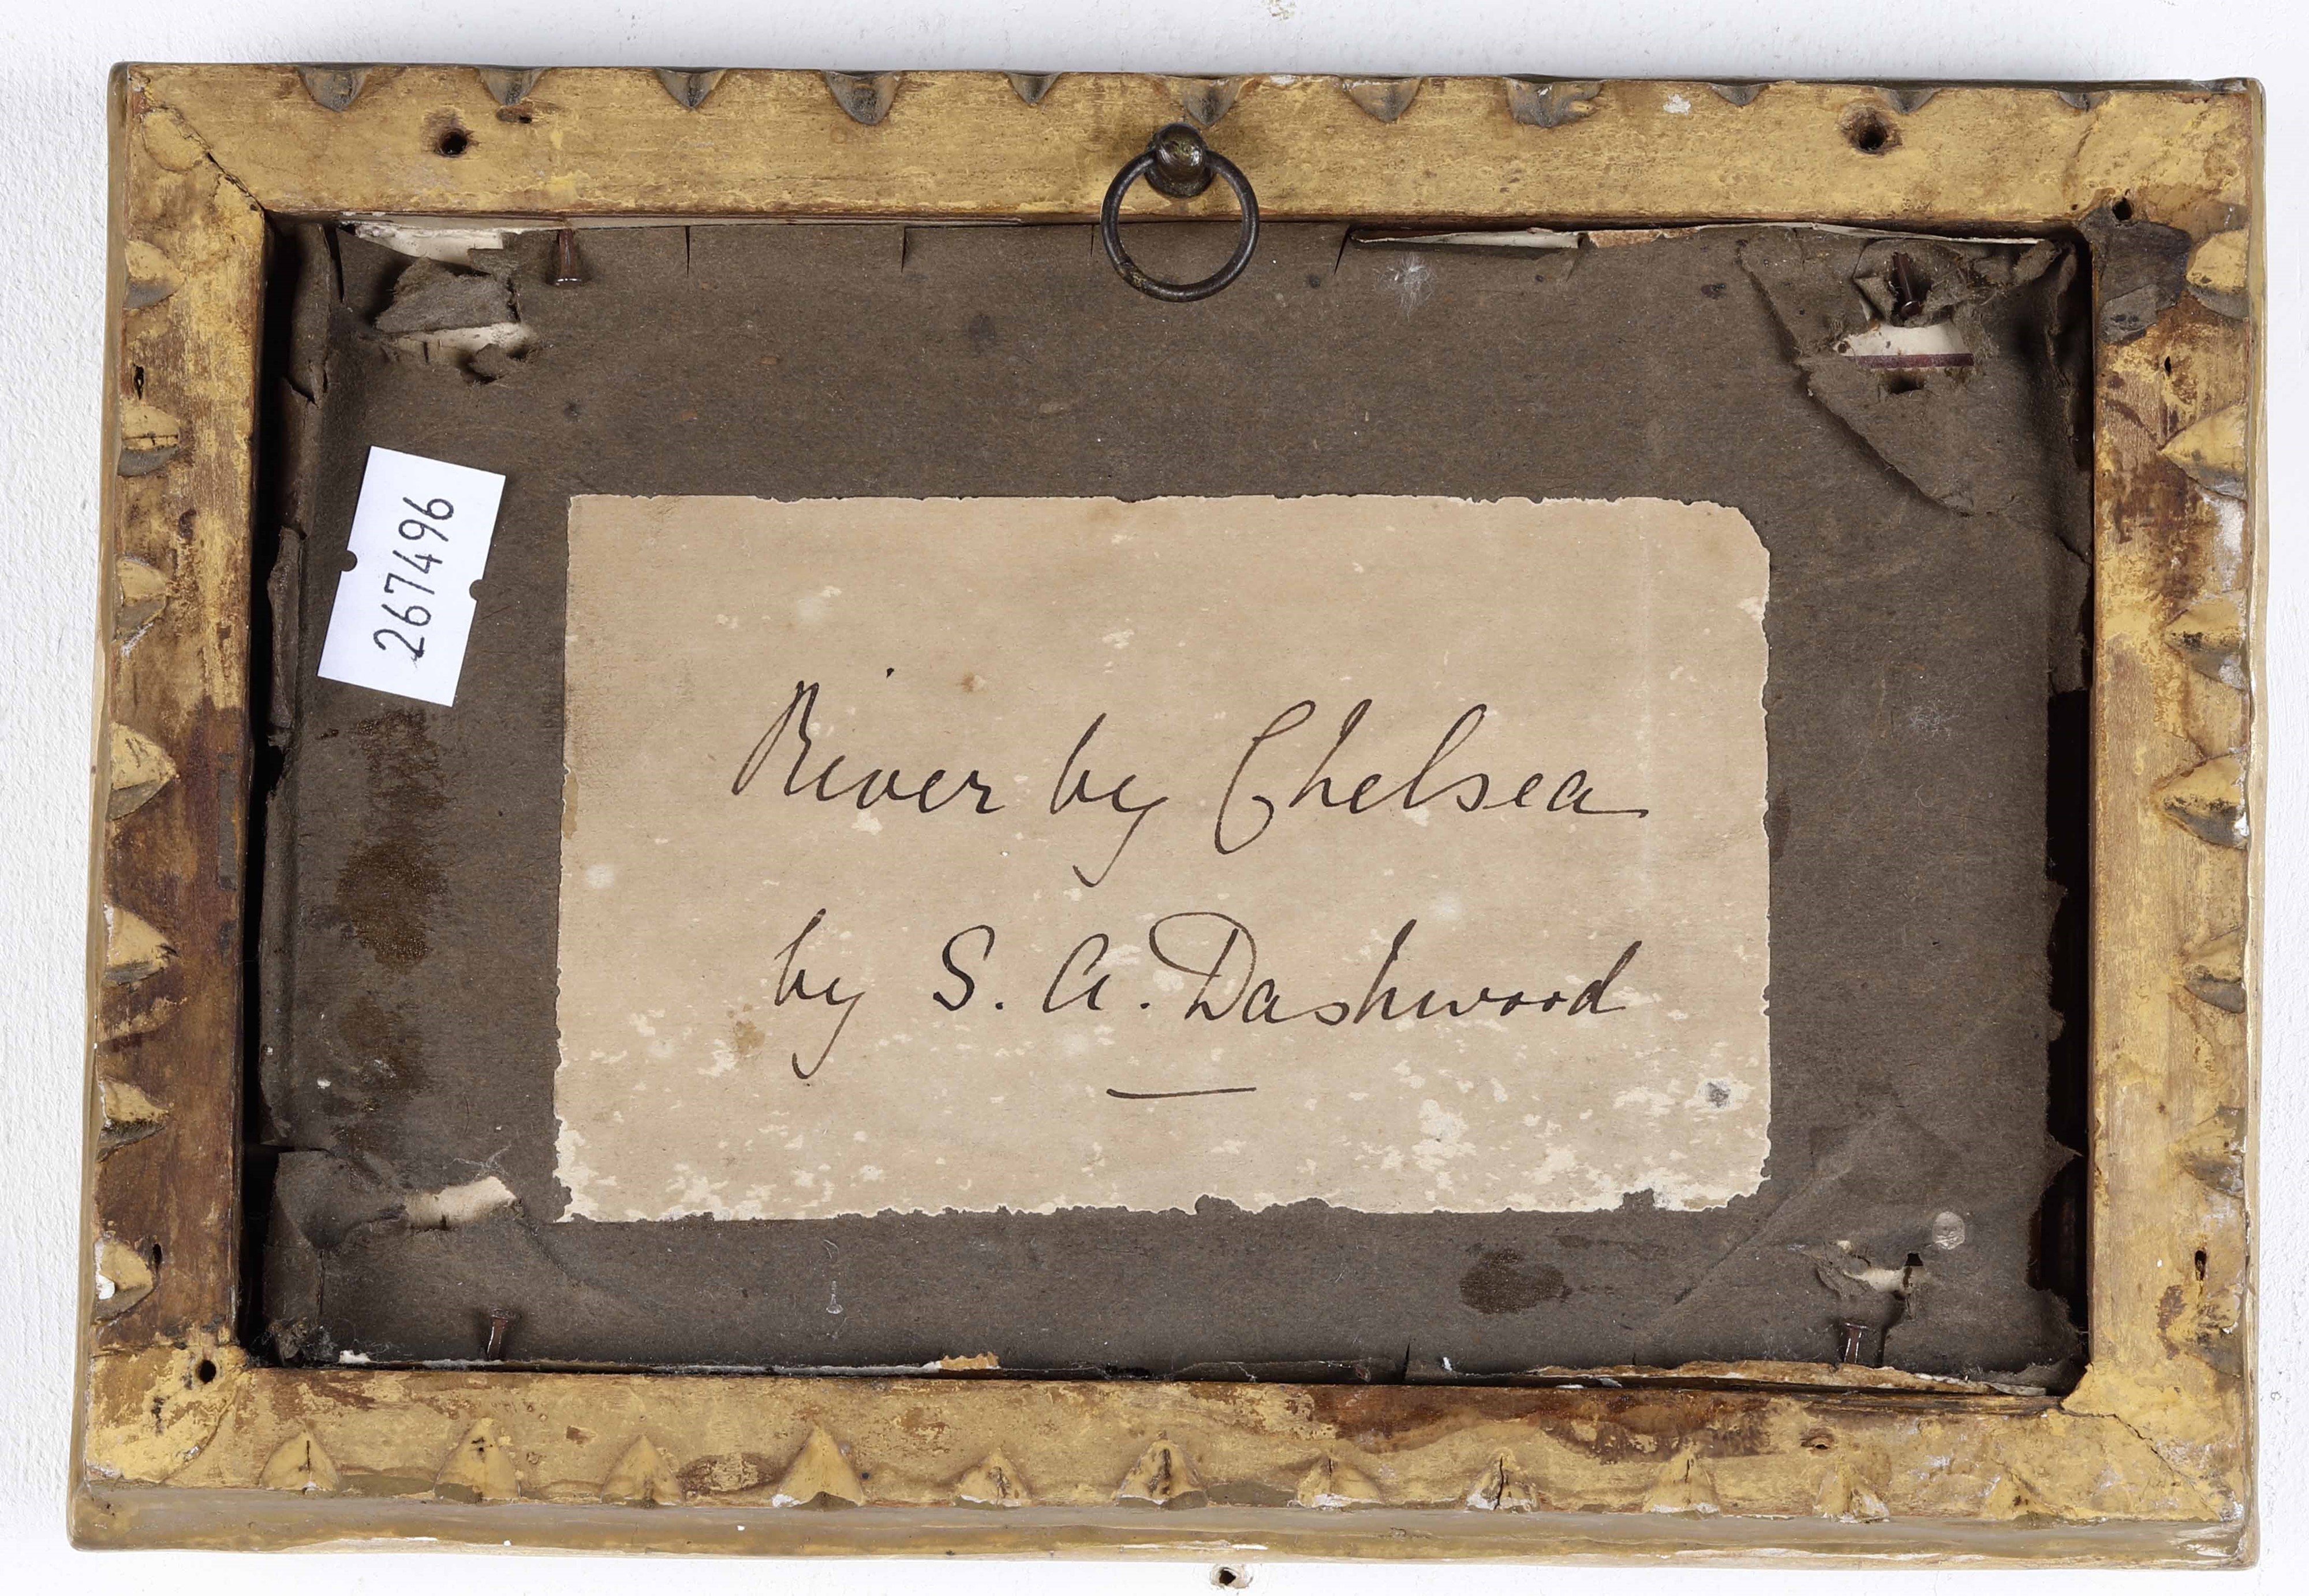 267496
River by Chelsea
by S. A. Dashwood